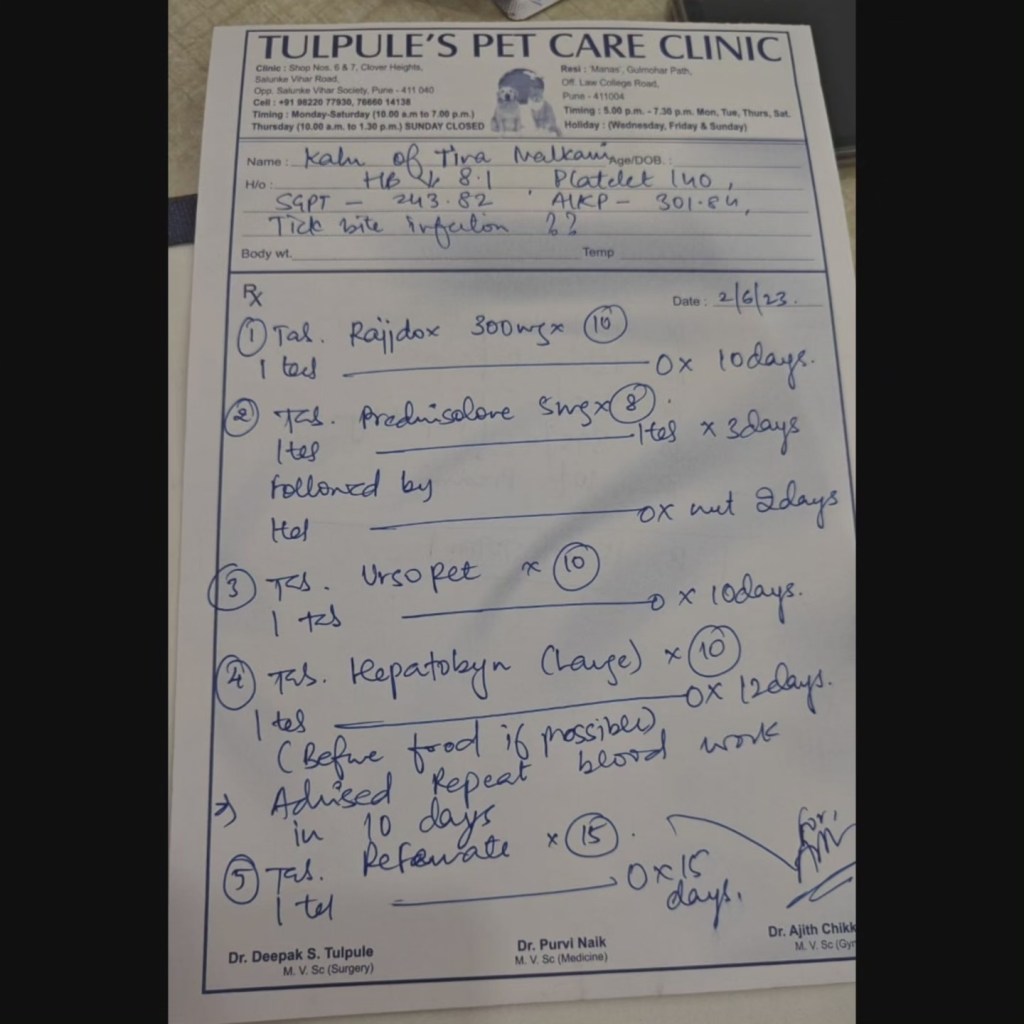 TULPULE'S PET CARE CLINIC
Clinic : Shop Nos. 6 & 7, Clover Heights,
Salunke Vihar Road,
Opp. Salunke Vihar Society, Pune - 411 040
Cell : +91 98220 77930, 76660 14138
Timing : Monday-Saturday (10.00 a.m to 7.00 p.m.)
Thursday (10.00 a.m. to 1.30 p.m.) SUNDAY CLOSED
Resi : 'Manas', Gulmohar Path,
Off. Law College Road,
Pune - 411004
Timing : 5.00 p.m. - 7.30 p.m. Mon, Tue, Thurs, Sat.
Holiday : (Wednesday, Friday & Sunday)
Name : Kalu of Tina Malkani Age/DOB. :
H/o : HB ↓ 8.1 Platelet 140,
SGPT - 243.82 , ALKP - 301.84,
Tick bite infection ??
Body wt. Temp
Rx
Date : 2/6/23.
① Tab. 300mg x ⑩
1 tab ——— 0 x 10 days.
② Tab. Prednisolone 5mg x ⑧.
1 tab ——— 1 tab x 3 days
Followed by
1 tab ——— 0 x next 2 days
③ Tab. Ursopet x ⑩
1 tab ——— 0 x 10 days.
④ Tab. (Large) x ⑩
1 tab ——— 0 x 12 days.
(Before food if possible)
→ Advised Repeat blood work
in 10 days
⑤ Tab. x ⑮.
1 tab ——— 0 x 15
days.
for.
Dr. Deepak S. Tulpule
M. V. Sc (Surgery)
Dr. Purvi Naik
M. V. Sc (Medicine)
Dr. Ajith Chikk
M. V. Sc (Gyn